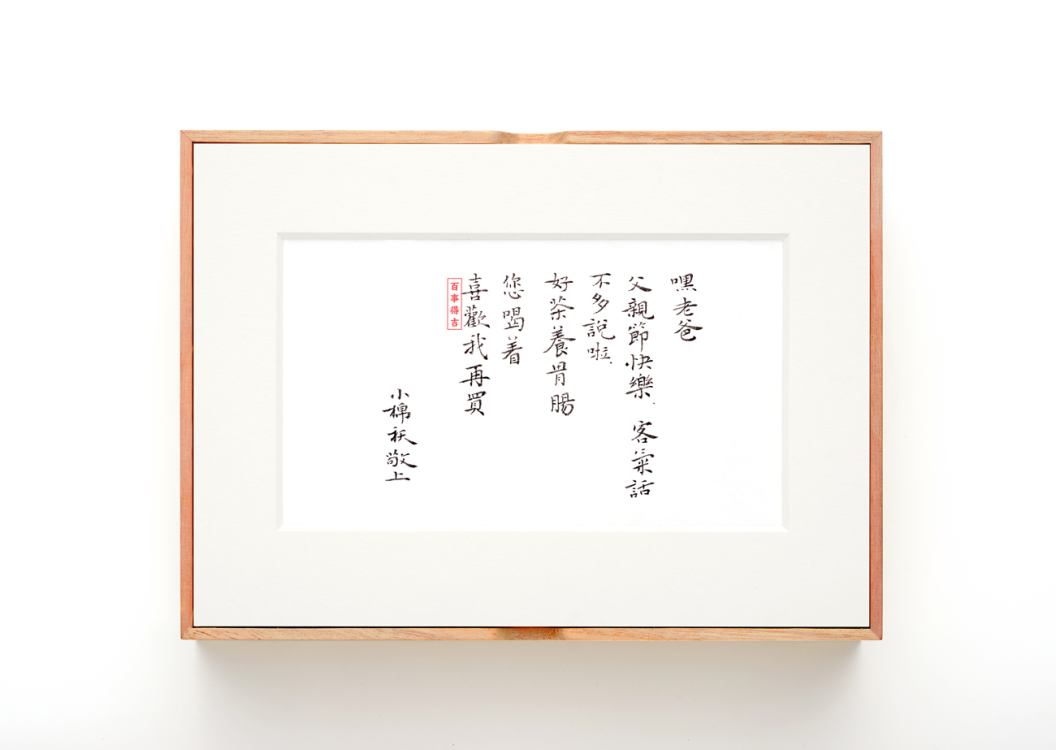 嘿老爸
父親節快樂. 客氣話
不多說啦.
好茶養胃腸
您喝着
喜歡我再買
百事得吉
小棉袄敬上